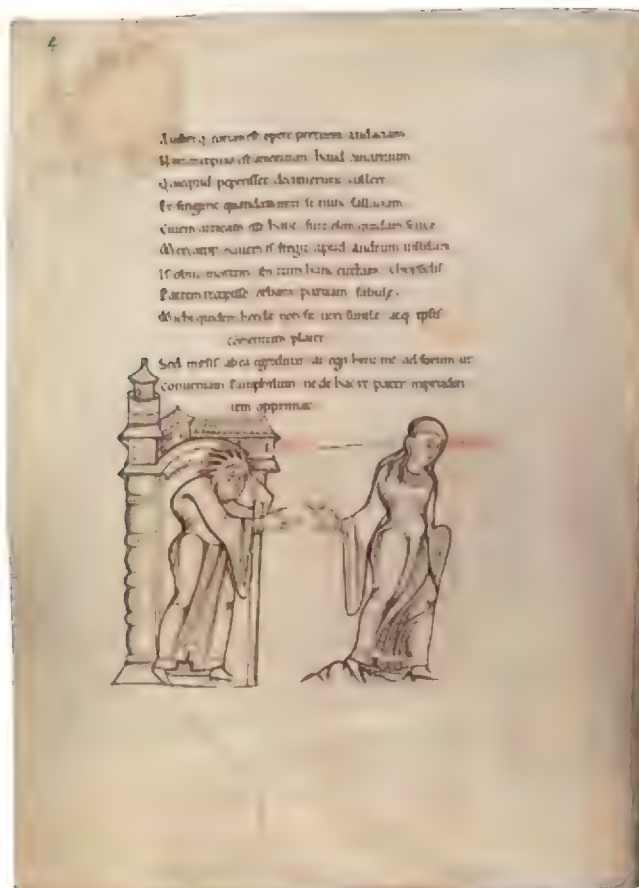 4
Audireq; eorum est opere precium audaciam
Nam inceptio est amentium haud amantium
Quicquid peperisset decreuerunt tollere
Et fingunt quandam inter se nunc fallaciam
Ciuem atticam esse hanc fuit olim quidam senex
Mercator nauem is fregit apud andrum insulam
Is obiit mortem ibi tum hanc eiectam chrysidis
Patrem recepisse orbam paruam fabulę.
Mihi quidem hercle non fit ueri simile atq; ipsis
commentum placet
Sed mysis ab ea egreditur at ego hinc me ad forum ut
conueniam Pamphilum ne de hac re pater impruden
tem opprimat